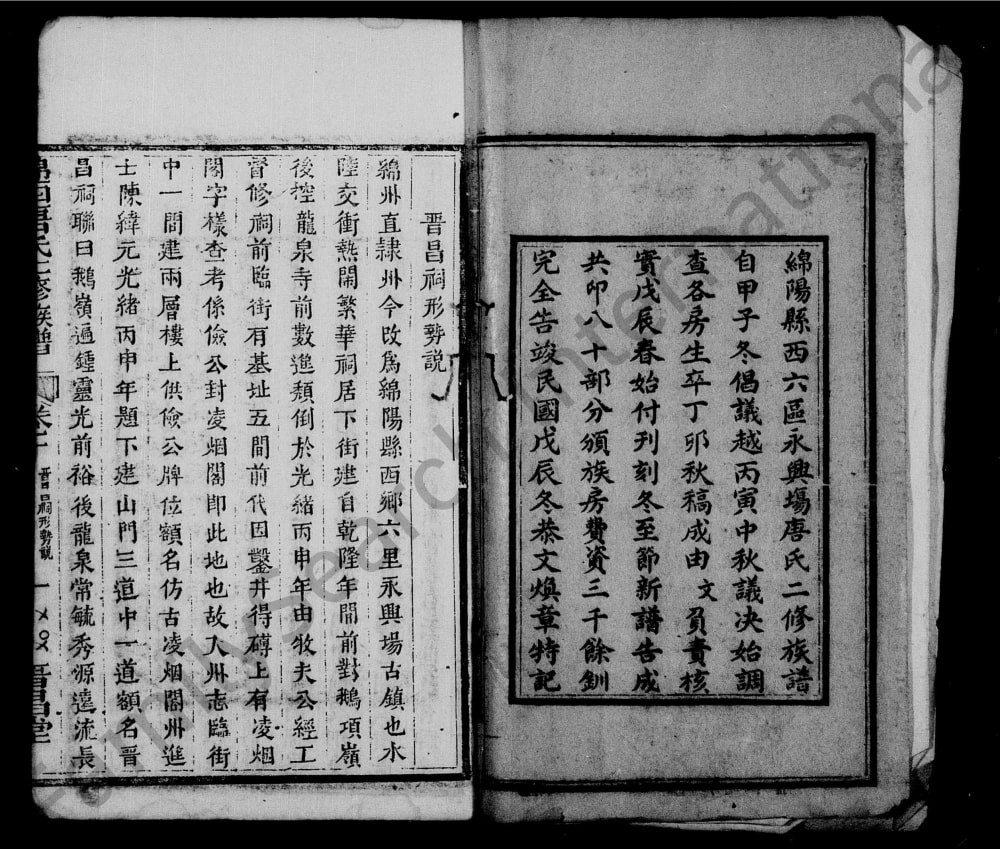 綿陽縣西六區永興場唐氏二修族譜
自甲子冬倡議越丙寅中秋議决始調
查各房生卒丁卯秋稿成由文負責核
實戊辰春始付刊刻冬至節新譜告成
共卬八十部分頒族房費資三千餘釧
完全告竣民國戊辰冬恭文煥章特記
晋昌祠形勢説
綿州直隷州今改爲綿陽縣西鄉六里永興場古鎮也水
陸交衝熱閙繁華祠居下街建自乾隆年間前對鵝項嶺
後控龍泉寺前數進頹倒於光緒丙申年由牧夫公經工
督修祠前臨街有基址五間前代因鑿井得磚上有凌烟
閣字樣查考係儉公封凌烟閣即此地也故入州志臨街
中一間建兩層樓上供儉公牌位額名仿古凌烟閣州進
士陳緯元光緒丙申年題下建山門三道中一道額名晋
昌祠聯曰鵝嶺遍鍾靈光前裕後龍泉常毓秀源遠流長
綿西唐氏二修族譜 卷一 晋昌祠形勢説 一 晋昌堂
FamilySearch International